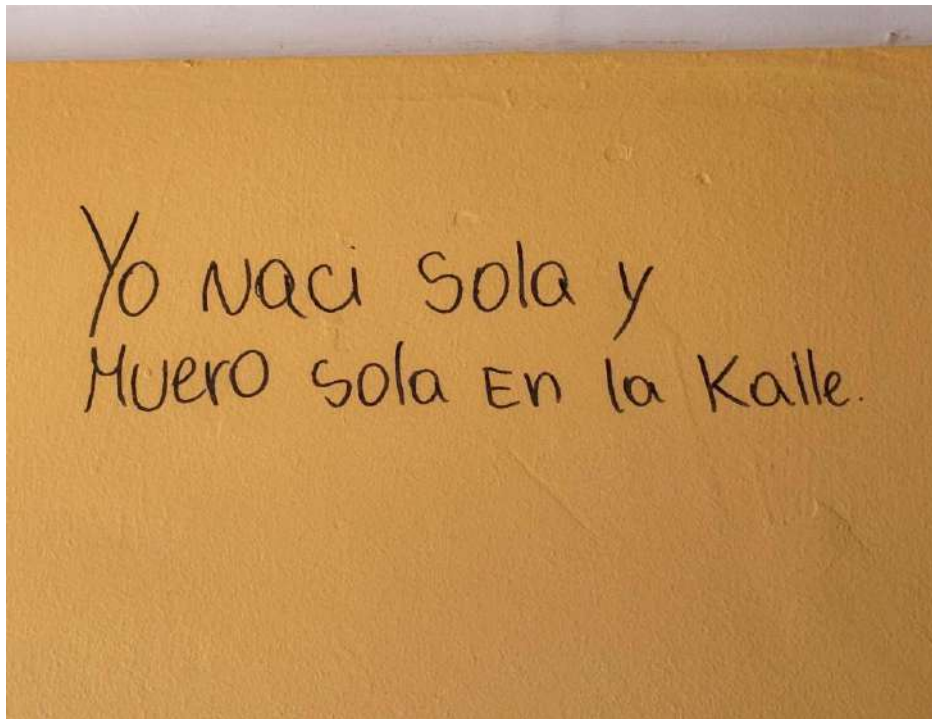 Yo Naci Sola y
Muero sola En la Kalle.